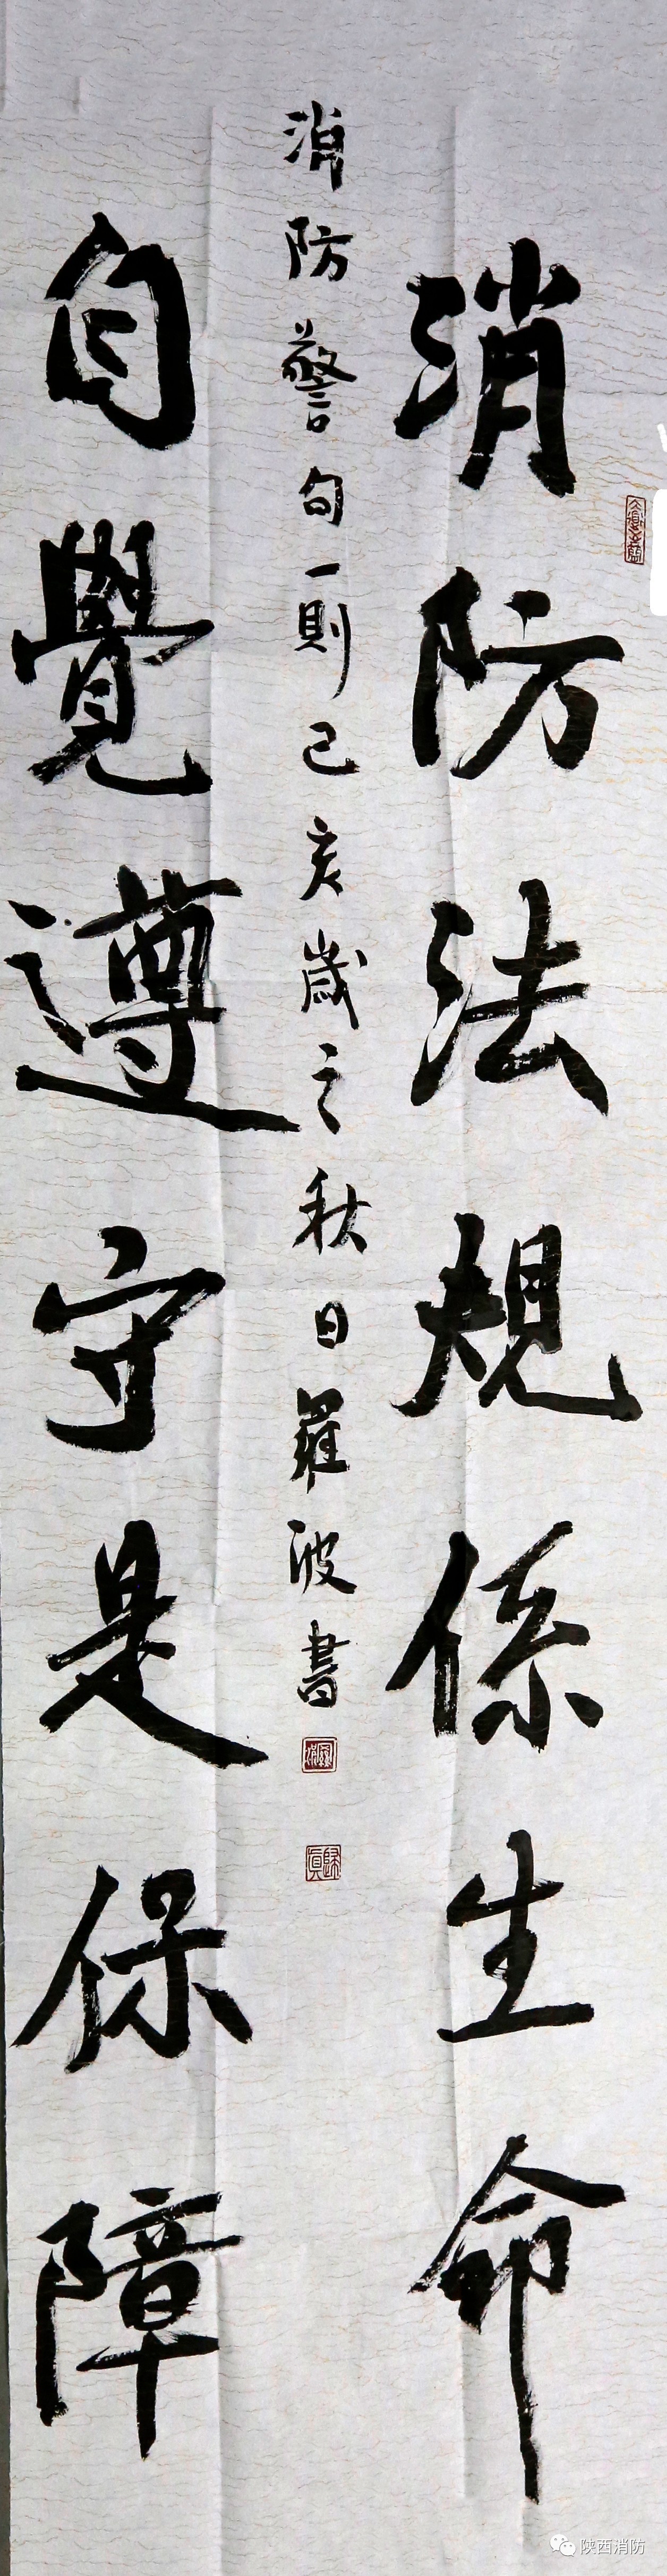 消防法規係生命
自覺遵守是保障
消防警句一則己亥歲之秋日羅波書
陕西消防